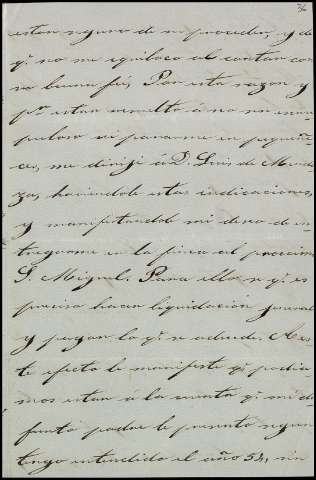 estar seguro de su proceder, y de
qe no me equiboco al contar con
su buena fé. Por esta razon y
pr estar resuelto á no ser
ni pararme en pequeñe-
ces, me dirijí á D. Luis de Mendo-
za, haciendole estas indicaciones,
y manifestandole mi deseo de en-
tregarme en la finca al procsimo
S. Miguel. Para ello se qe es
preciso hacer liquidación general
y pagar lo qe se adeude. A es-
te efecto le manifesté qe podia-
mos estar a la cuenta qe mi di-
funto padre le presentó segun
tengo entendido el año 54, sin